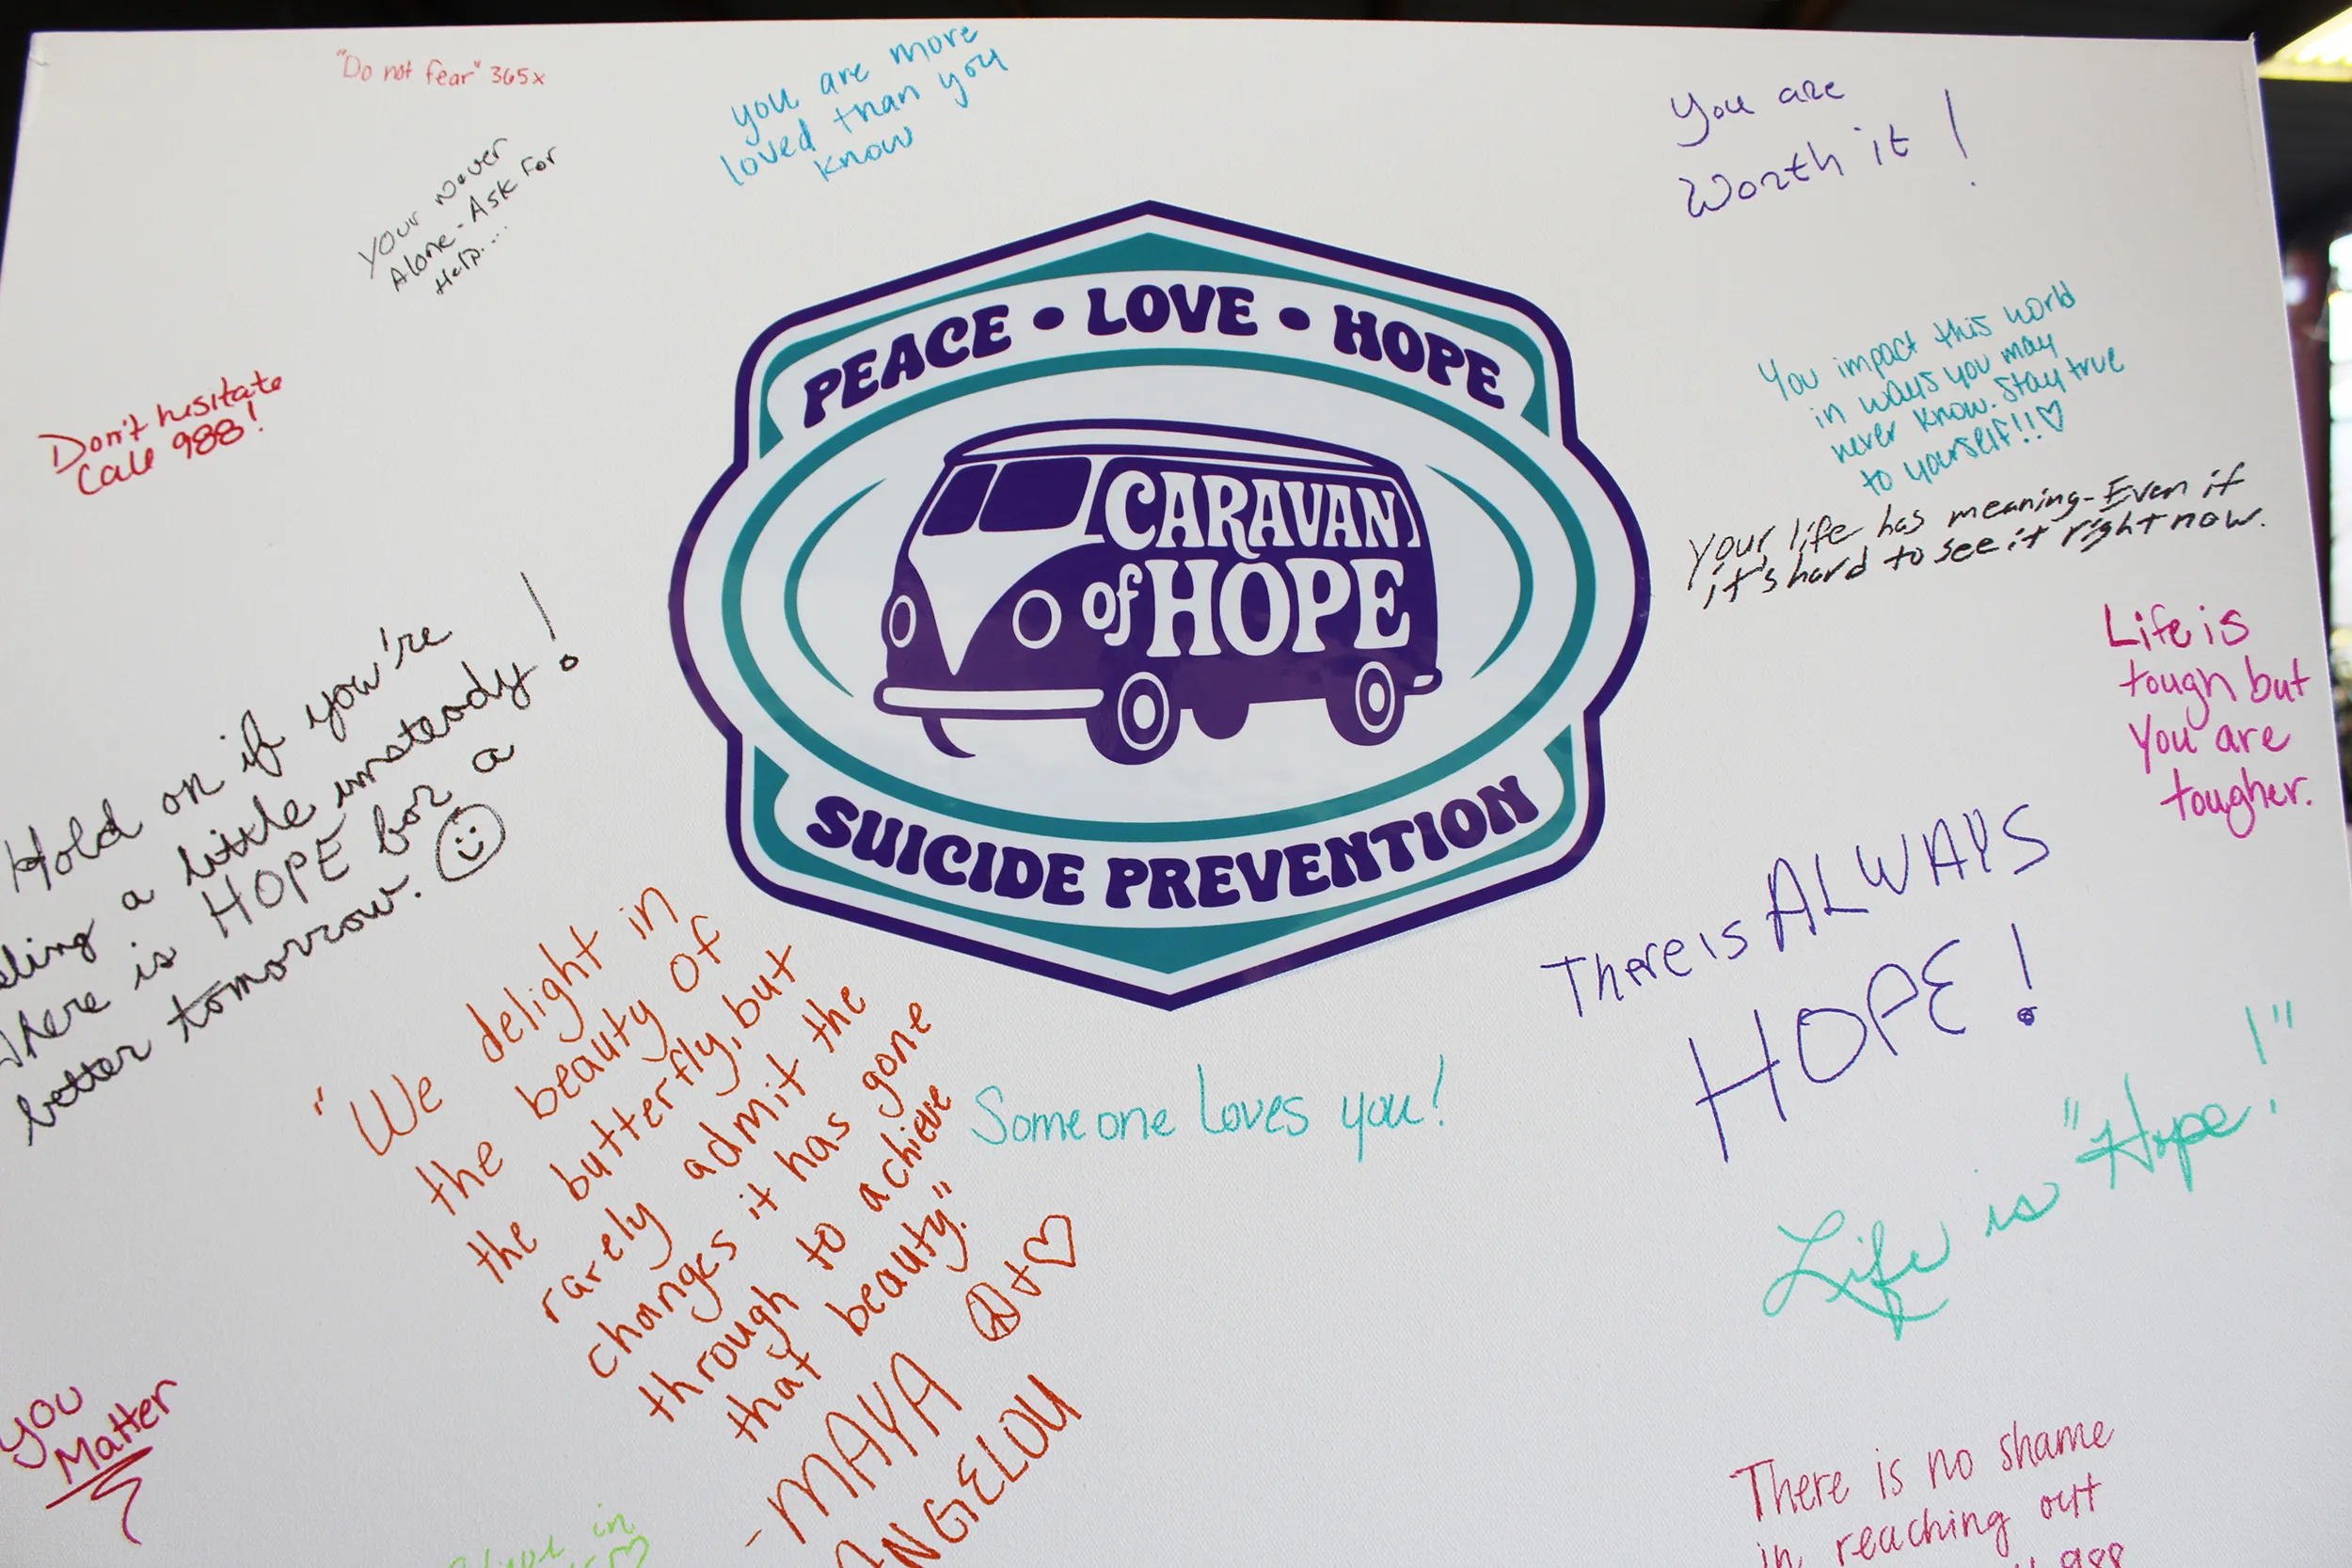 "Do not fear" 365x
you are more
loved than you
know
You are
Worth it!
Your never
Alone-Ask For
Help....
Don't hesitate
Call 988!
PEACE • LOVE • HOPE
CARAVAN
of HOPE
SUICIDE PREVENTION
You impact this world
in ways you may
never know. Stay true
to yourself!!♡
Your life has meaning-Even if
it's hard to see it right now.
Life is
tough but
You are
tougher.
Hold on if you're
a little unsteady!
There is HOPE for a
better tomorrow. ☺
There is ALWAYS
HOPE!
"We delight in
the beauty of
the butterfly, but
rarely admit the
changes it has gone
through to achieve
that beauty."
☮+♡
-MAYA
ANGELOU
Someone loves you!
Life is "Hope!"
you
Matter
in
♡
There is no shame
in reaching out
988